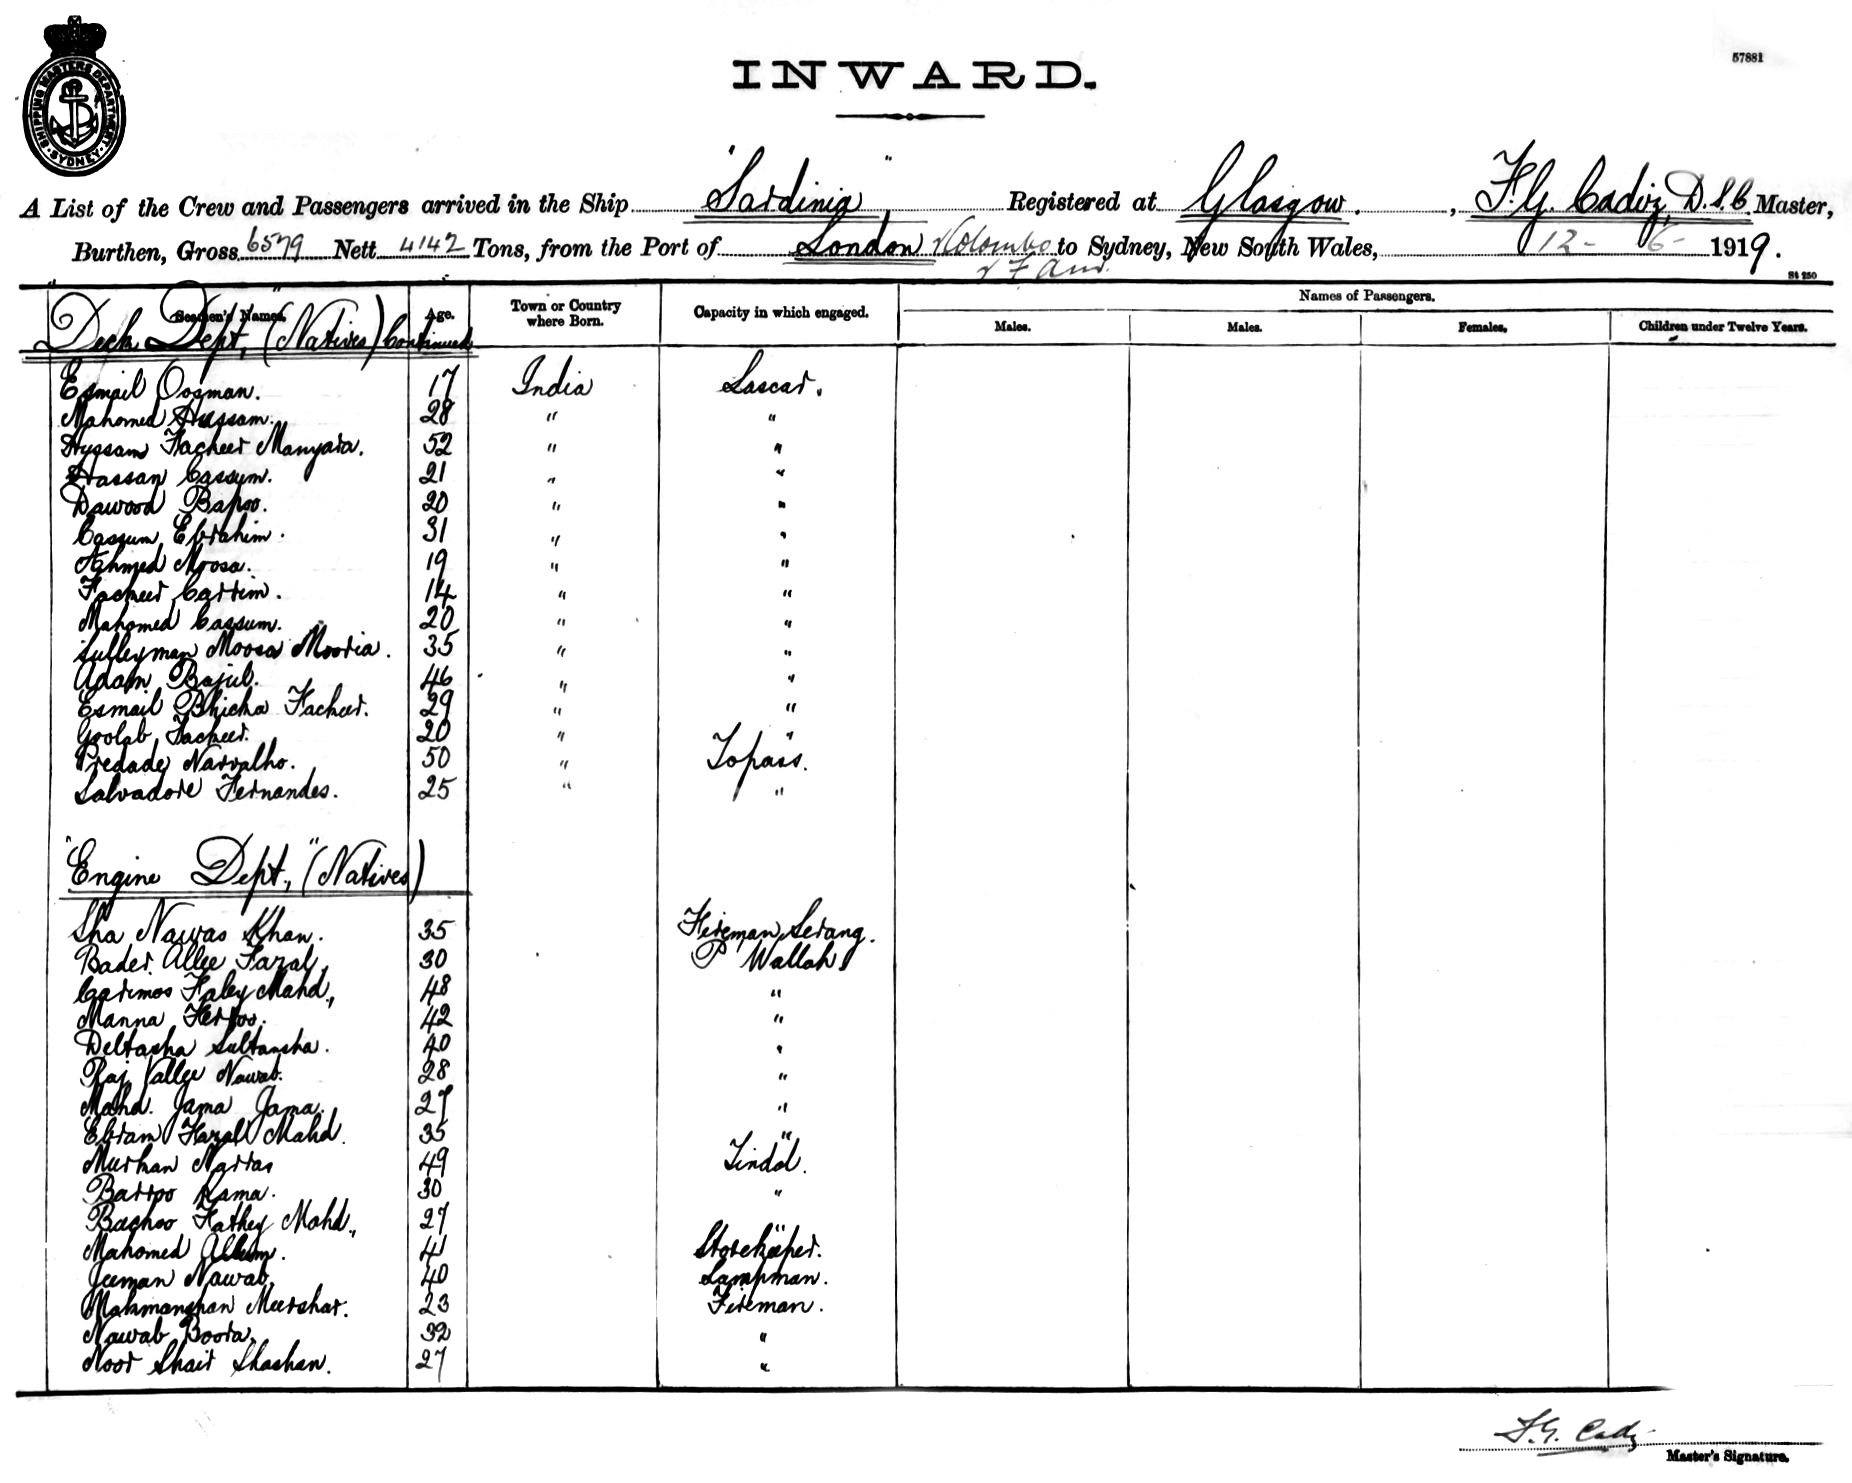 SHIPPING MASTERS DEPARTMENT · SYDNEY ·
57881
INWARD.
A List of the Crew and Passengers arrived in the Ship "Sardinia" Registered at Glasgow. , F.G. Cadiz, D.S.C. Master,
Burthen, Gross 6579 Nett 4142 Tons, from the Port of London Colombo to Sydney, New South Wales, 12 - 6 - 1919.
St 250
Seamen's Names. Age. Town or Country where Born. Capacity in which engaged. Names of Passengers.
Males. Males. Females. Children under Twelve Years.
Deck Dept," (Natives) Continued
Esmail Oosman. 17 India Lascar.
Mahomed Hussam. 28 " "
Hyssam Facheer Manyara. 52 " "
Hassan Cassum. 21 " "
Dawood Bapoo. 20 " "
Cassum Ebrahim. 31 " "
Ahmed Moosa. 19 " "
Facheer Carrim. 14 " "
Mahomed Cassum. 20 " "
Sulleyman Moosa Mooria. 35 " "
Adam Bajul. 46 " "
Esmail Bhicha Facheer. 29 " "
Goolab Facheer. 20 " "
Predade Narvalho. 50 " Topass.
Salvadore Fernandes. 25 " "
"Engine Dept.," (Natives)
Sha Nawas Khan. 35 Fireman Serang.
Bader Allee Fazal, 30 P Wallah
Carimos Faley Mahd., 48 "
Manna Feroo. 42 "
Deltasha Sultansha. 40 "
Raj Vallee Nawab. 28 "
Mahd. Jama Jama. 27 "
Ebram Fazal Mahd. 35 "
Murkan Narras 49 Tindal.
Barroo Rama. 30 "
Bachoo Fathey Mahd., 27 "
Mahomed Allum. 41 Storekeeper.
Jeeman Nawab, 40 Lampman.
Mahmanshan Meershar. 23 Fireman.
Nawab Boora, 32 "
Noor Shair Shashan. 27 "
F.G. Cadiz
Master's Signature.